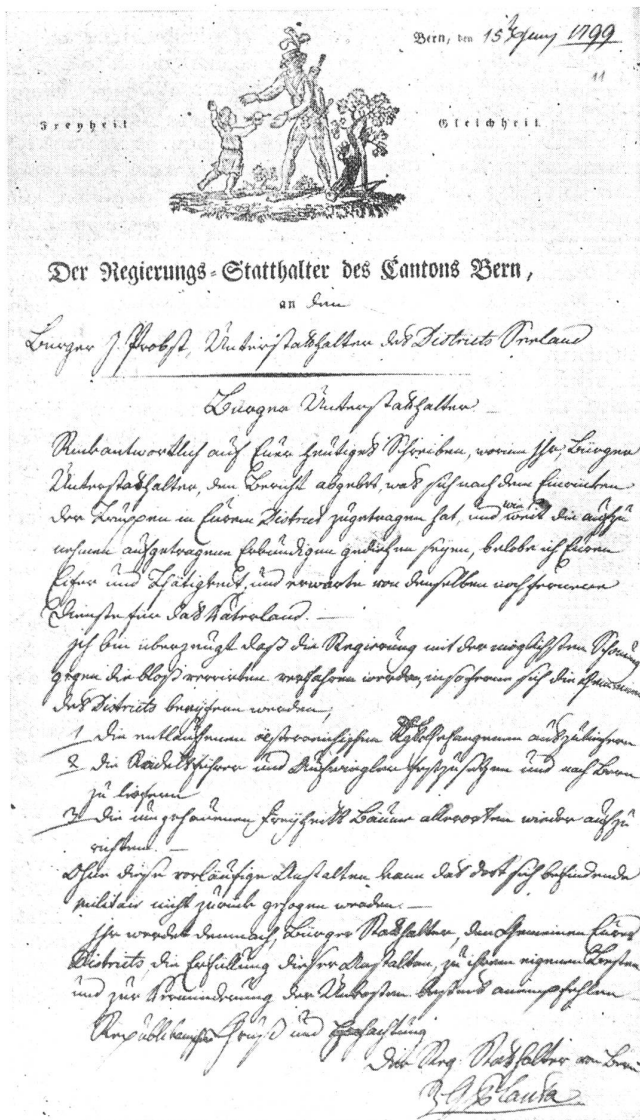 Bern, den 15t Juny 1799
11
Freyheit
Gleichheit
Der Regierungs-Statthalter des Cantons Bern,
an den
Burger J. Probst, Unterstatthalter des Districts Seeland
Burger Unterstatthalter
Rückantwortlich auf Euer heutiges Schreiben, worinn Ihr, Bürger
Unterstatthalter, den Bericht abgebet, was sich nach dem Einrücken
der Truppen in Eurem District zugetragen hat, und wie weit die aufzu
nehmen aufgetragene Erkundigen gediehen seyen, belobe ich Euren
Eifer und Thätigkeit, und erwarte von denselben noch fernere
Dienste für das Vaterland. —
Ich bin überzeugt daß die Regierung mit der möglichsten Schonung
gegen die bloß verirrten verfahren werde, insoferne sich die Gemeinen
des Districts beeifern werden,
1 die entlaufenen oesterreichischen Kriegsgefangenen auszuliefern
2 die Rädelsführer und Aufwiegler festzusetzen und nach Bern
zu liefern
3 die umgehauenen Freyheits Bäume allerorten wieder aufzu
richten. —
Ohne diese vorläufige Anstalten kann das dort sich befindende
Militair nicht zurück gezogen werden. —
Ihr werdet demnach, Bürger Statthalter, den Gemeinen Eures
Districts, die Erfüllung dieser Anstalten, zu ihrem eigenen Besten
und zur Verminderung der Unkosten bestens anempfehlen
Republikanischer Gruß und Hochachtung
Der Reg. Statthalter von Bern